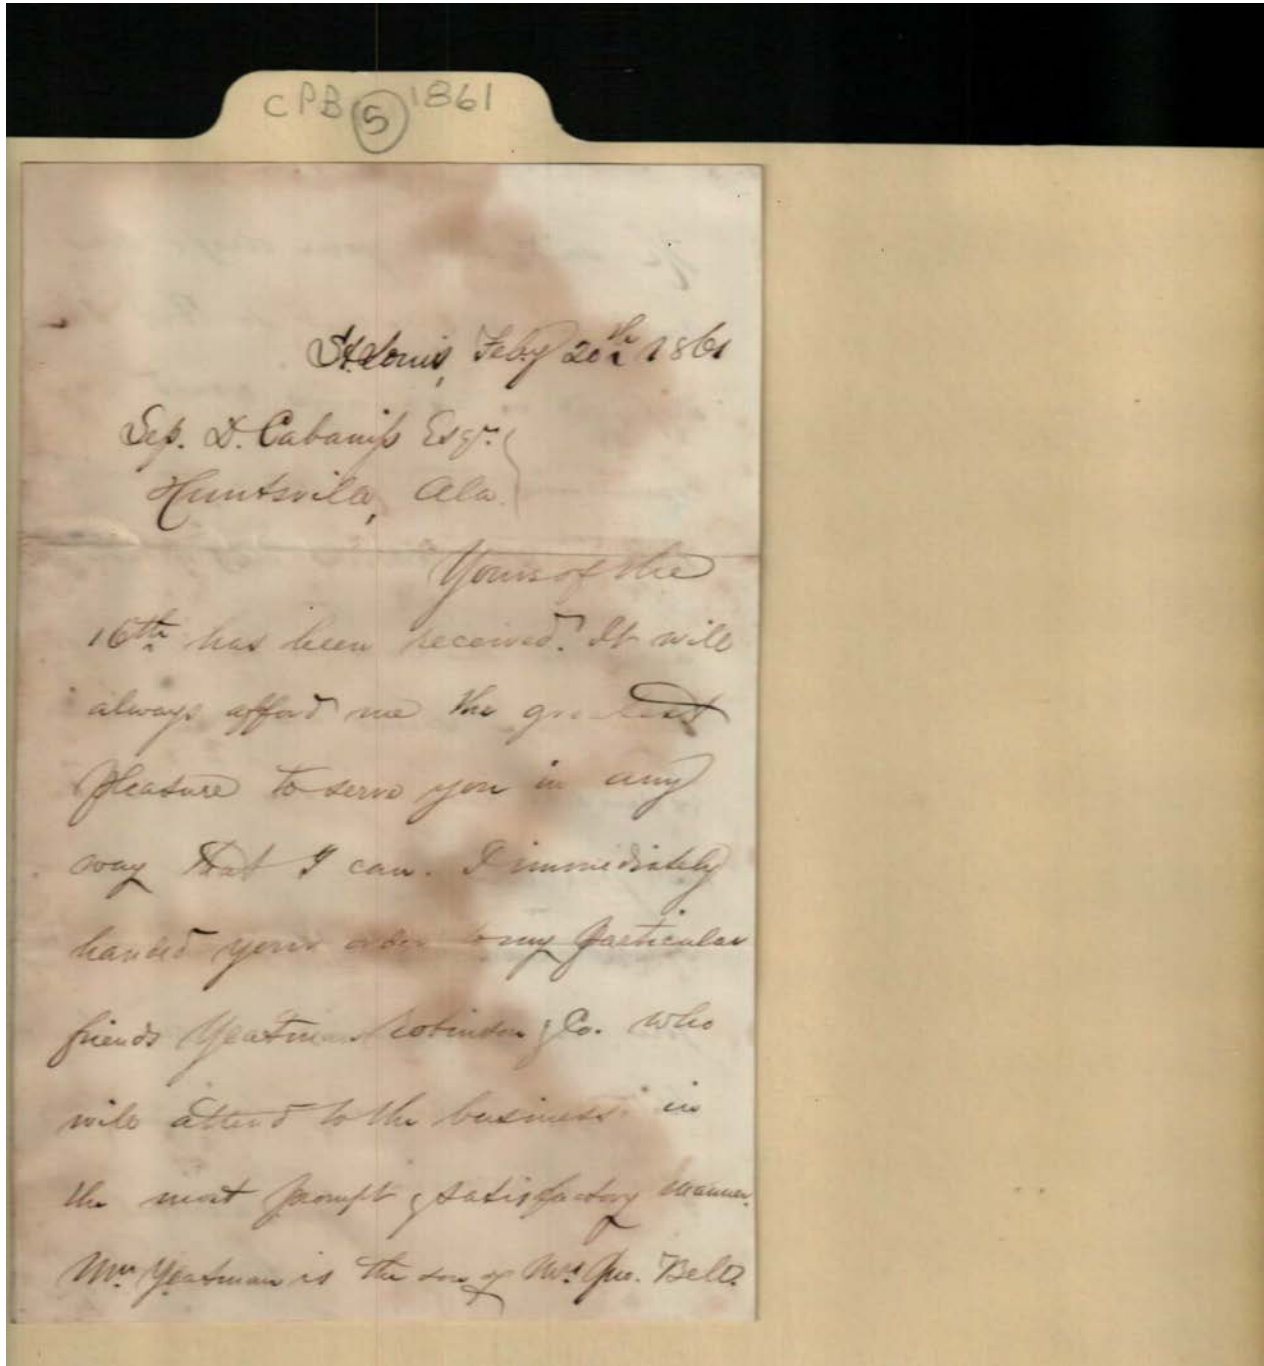 CPB 5 1861
St. Louis, Feby 20th 1861
Sep. D. Cabaniss Esqr.
Huntsville, Ala.
Yours of the
16th has been received. It will
always afford me the greatest
pleasure to serve you in any
way that I can. I immediately
handed your order to my particular
friends Yeatman Robinson & Co. who
will attend to the business in
the most prompt & satisfactory manner.
Mr. Yeatman is the son of Mrs. Jno. Bell.